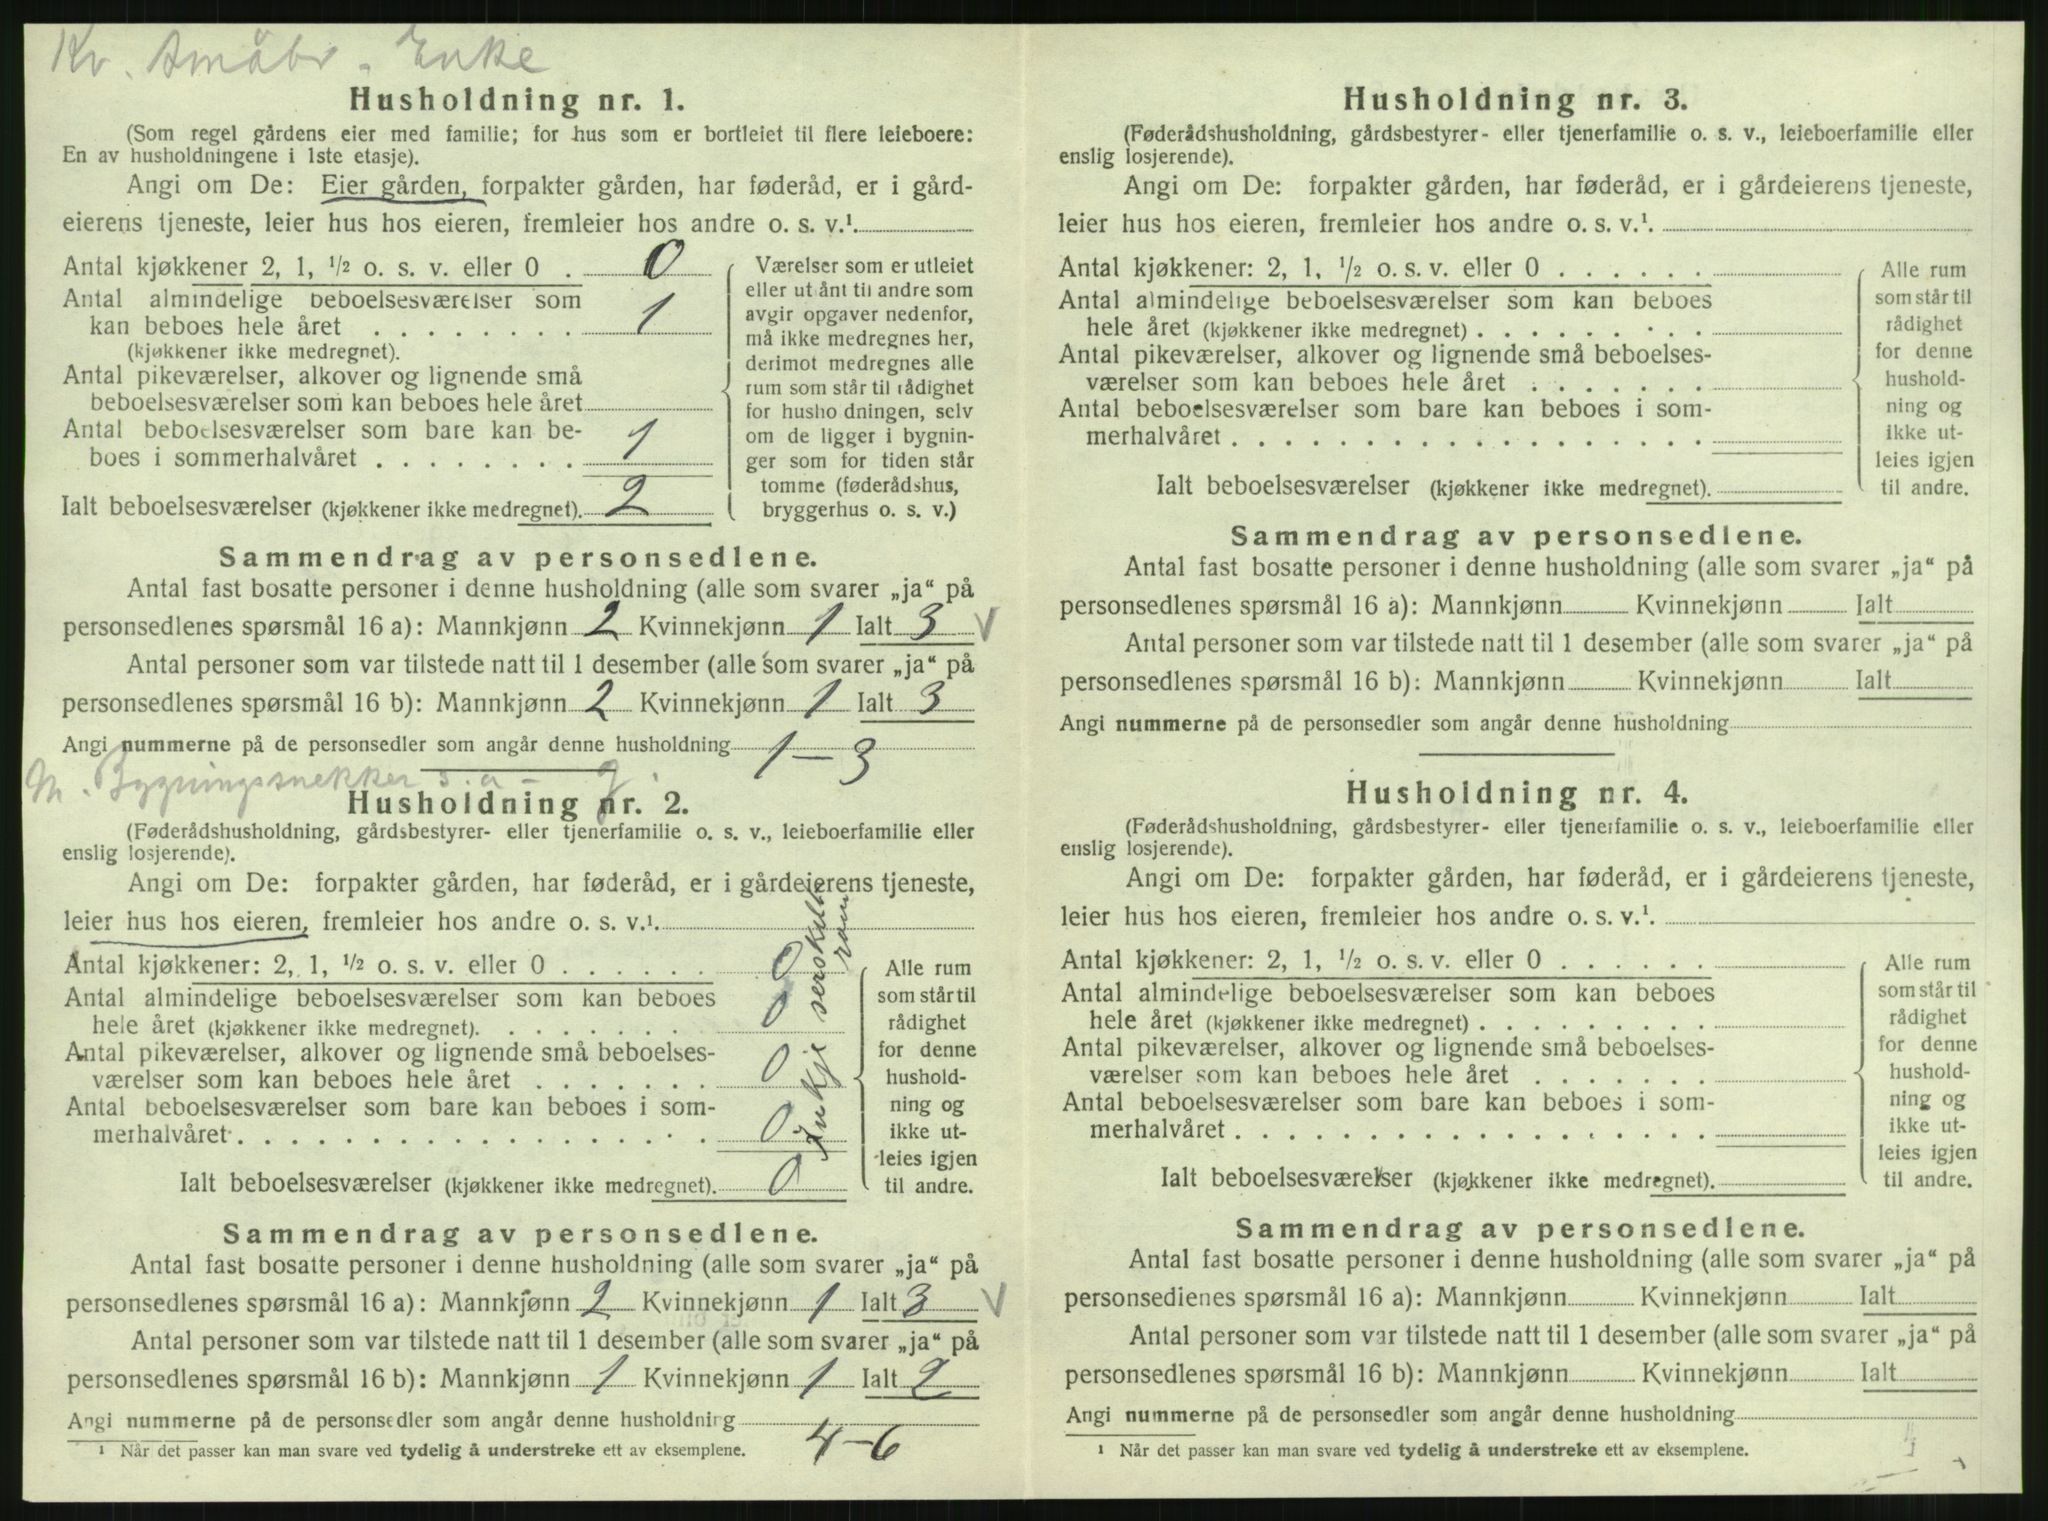 Kv. Småbr. Enke
Husholdning nr. 1.
(Som regel gårdens eier med familie; for hus som er bortleiet til flere leieboere:
En av husholdningene i 1ste etasje).
Angi om De: Eier gården, forpakter gården, har føderåd, er i gård-
eierens tjeneste, leier hus hos eieren, fremleier hos andre o. s. v.¹
Antal kjøkkener 2, 1, ½ o. s. v. eller 0 . 0
Antal almindelige beboelsesværelser som
kan beboes hele året . . . . . . . . 1
(kjøkkener ikke medregnet).
Antal pikeværelser, alkover og lignende små
beboelsesværelser som kan beboes hele året
Antal beboelsesværelser som bare kan be-
boes i sommerhalvåret . . . . . . . . 1
Ialt beboelsesværelser (kjøkkener ikke medregnet). 2
Værelser som er utleiet
eller utlånt til andre som
avgir opgaver nedenfor,
må ikke medregnes her,
derimot medregnes alle
rum som står til rådighet
for husho dningen, selv
om de ligger i bygnin-
ger som for tiden står
tomme (føderådshus,
bryggerhus o. s. v.)
Sammendrag av personsedlene.
Antal fast bosatte personer i denne husholdning (alle som svarer „ja“ på
personsedlenes spørsmål 16 a): Mannkjønn 2 Kvinnekjønn 1 Ialt 3 V
Antal personer som var tilstede natt til 1 desember (alle som svarer „ja“ på
personsedlenes spørsmål 16 b): Mannkjønn 2 Kvinnekjønn 1 Ialt 3
Angi nummerne på de personsedler som angår denne husholdning 1 – 3
M. Bygningssnekker s. a – g.
Husholdning nr. 2.
(Føderådshusholdning, gårdsbestyrer- eller tjenerfamilie o. s. v., leieboerfamilie eller
enslig losjerende).
Angi om De: forpakter gården, har føderåd, er i gårdeierens tjeneste,
leier hus hos eieren, fremleier hos andre o. s. v.¹
Antal kjøkkener: 2, 1, ½ o. s. v. eller 0 . . . . . . 0
Antal almindelige beboelsesværelser som kan beboes
hele året (kjøkkener ikke medregnet). . . . . . . . 0
Antal pikeværelser, alkover og lignende små beboelses-
værelser som kan beboes hele året . . . . . . . 0
Antal beboelsesværelser som bare kan beboes i som-
merhalvåret . . . . . . . . . . . . . . . . . . 0
Ialt beboelsesværelser (kjøkkener ikke medregnet). 0
Inkje serskilte
rom
Alle rum
som står til
rådighet
for denne
hushold-
ning og
ikke ut-
leies igjen
til andre.
Sammendrag av personsedlene.
Antal fast bosatte personer i denne husholdning (alle som svarer „ja“ på
personsedlenes spørsmål 16 a): Mannkjønn 2 Kvinnekjønn 1 Ialt 3 V
Antal personer som var tilstede natt til 1 desember (alle som svarer „ja“ på
personsedlenes spørsmål 16 b): Mannkjønn 1 Kvinnekjønn 1 Ialt 2
Angi nummerne på de personsedler som angår denne husholdning 4 – 6
¹ Når det passer kan man svare ved tydelig å understreke ett av eksemplene.
Husholdning nr. 3.
(Føderådshusholdning, gårdsbestyrer- eller tjenerfamilie o. s. v., leieboerfamilie eller
enslig losjerende).
Angi om De: forpakter gården, har føderåd, er i gårdeierens tjeneste,
leier hus hos eieren, fremleier hos andre o. s. v.¹
Antal kjøkkener: 2, 1, ½ o. s. v. eller 0 . . . . . .
Antal almindelige beboelsesværelser som kan beboes
hele året (kjøkkener ikke medregnet) . . . . . . . . .
Antal pikeværelser, alkover og lignende små beboelses-
værelser som kan beboes hele året . . . . . . .
Antal beboelsesværelser som bare kan beboes i som-
merhalvåret . . . . . . . . . . . . . . . . . .
Ialt beboelsesværelser (kjøkkener ikke medregnet).
Alle rum
som står til
rådighet
for denne
hushold-
ning og
ikke ut-
leies igjen
til andre.
Sammendrag av personsedlene.
Antal fast bosatte personer i denne husholdning (alle som svarer „ja“ på
personsedlenes spørsmål 16 a): Mannkjønn Kvinnekjønn Ialt
Antal personer som var tilstede natt til 1 desember (alle som svarer „ja“ på
personsedlenes spørsmål 16 b): Mannkjønn Kvinnekjønn Ialt
Angi nummerne på de personsedler som angår denne husholdning
Husholdning nr. 4.
(Føderådshusholdning, gårdsbestyrer- eller tjenerfamilie o. s. v., leieboerfamilie eller
enslig losjerende).
Angi om De: forpakter gården, har føderåd, er i gårdeierens tjeneste,
leier hus hos eieren, fremleier hos andre o. s. v.¹
Antal kjøkkener: 2, 1, ½ o. s. v. eller 0 . . . . . .
Antal almindelige beboelsesværelser som kan beboes
hele året (kjøkkener ikke medregnet) . . . . . . . . .
Antal pikeværelser, alkover og lignende små beboelses-
værelser som kan beboes hele året . . . . . . .
Antal beboelsesværelser som bare kan beboes i som-
merhalvåret . . . . . . . . . . . . . . . . . .
Ialt beboelsesværelser (kjøkkener ikke medregnet).
Alle rum
som står til
rådighet
for denne
hushold-
ning og
ikke ut-
leies igjen
til andre.
Sammendrag av personsedlene.
Antal fast bosatte personer i denne husholdning (alle som svarer „ja“ på
personsedlenes spørsmål 16 a): Mannkjønn Kvinnekjønn Ialt
Antal personer som var tilstede natt til 1 desember (alle som svarer „ja“ på
personsedlenes spørsmål 16 b): Mannkjønn Kvinnekjønn Ialt
Angi nummerne på de personsedler som angår denne husholdning
¹ Når det passer kan man svare ved tydelig å understreke ett av eksemplene.